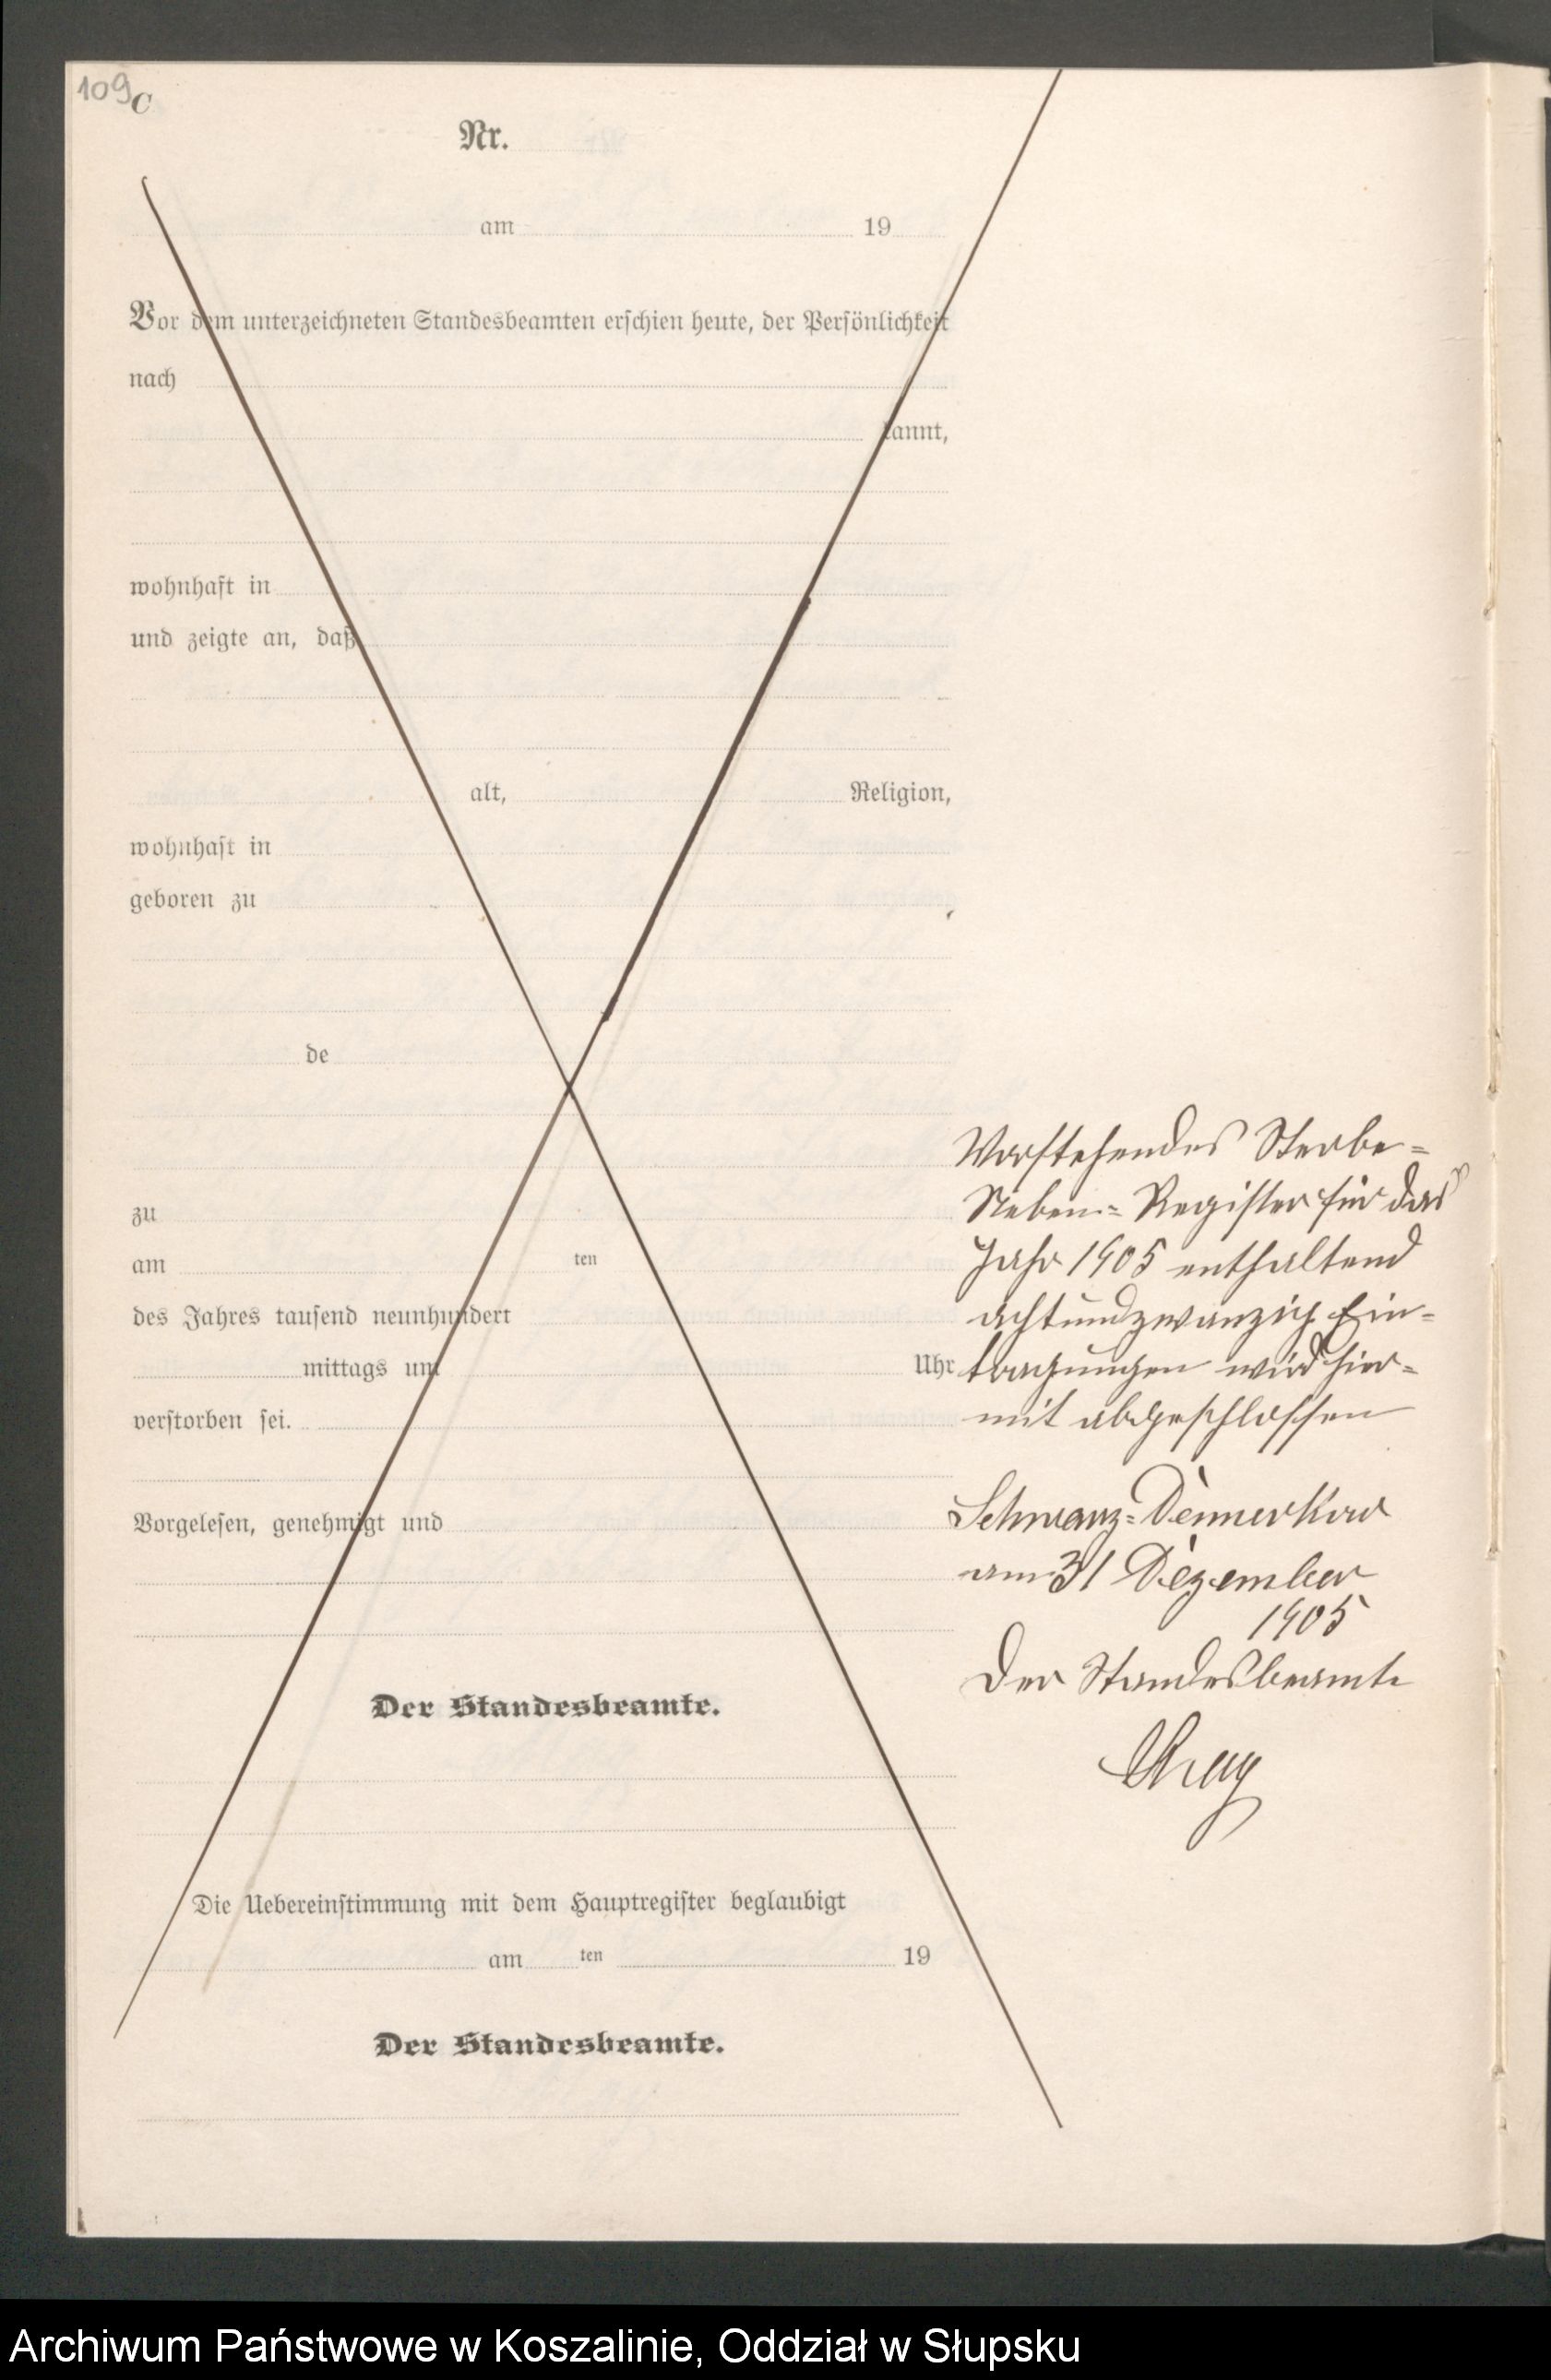 109
C
Nr.
am 19
Vor dem unterzeichneten Standesbeamten erschien heute, der Persönlichkeit
nach
kannt,
wohnhaft in
und zeigte an, daß
alt, Religion,
wohnhaft in
geboren zu
de
zu
am ten
des Jahres tausend neunhundert
mittags um Uhr
verstorben sei.
Vorgelesen, genehmigt und
Der Standesbeamte.
Die Uebereinstimmung mit dem Hauptregister beglaubigt
am ten 19
Der Standesbeamte.
Vorstehendes Sterbe=
Neben=Register für das
Jahr 1905 enthaltend
achtundzwanzig Ein=
tragungen wird hier=
mit abgeschlossen
Schwarz=Dennerkow
am 31 Dezember
1905
Der Standesbeamte
Archiwum Państwowe w Koszalinie, Oddział w Słupsku